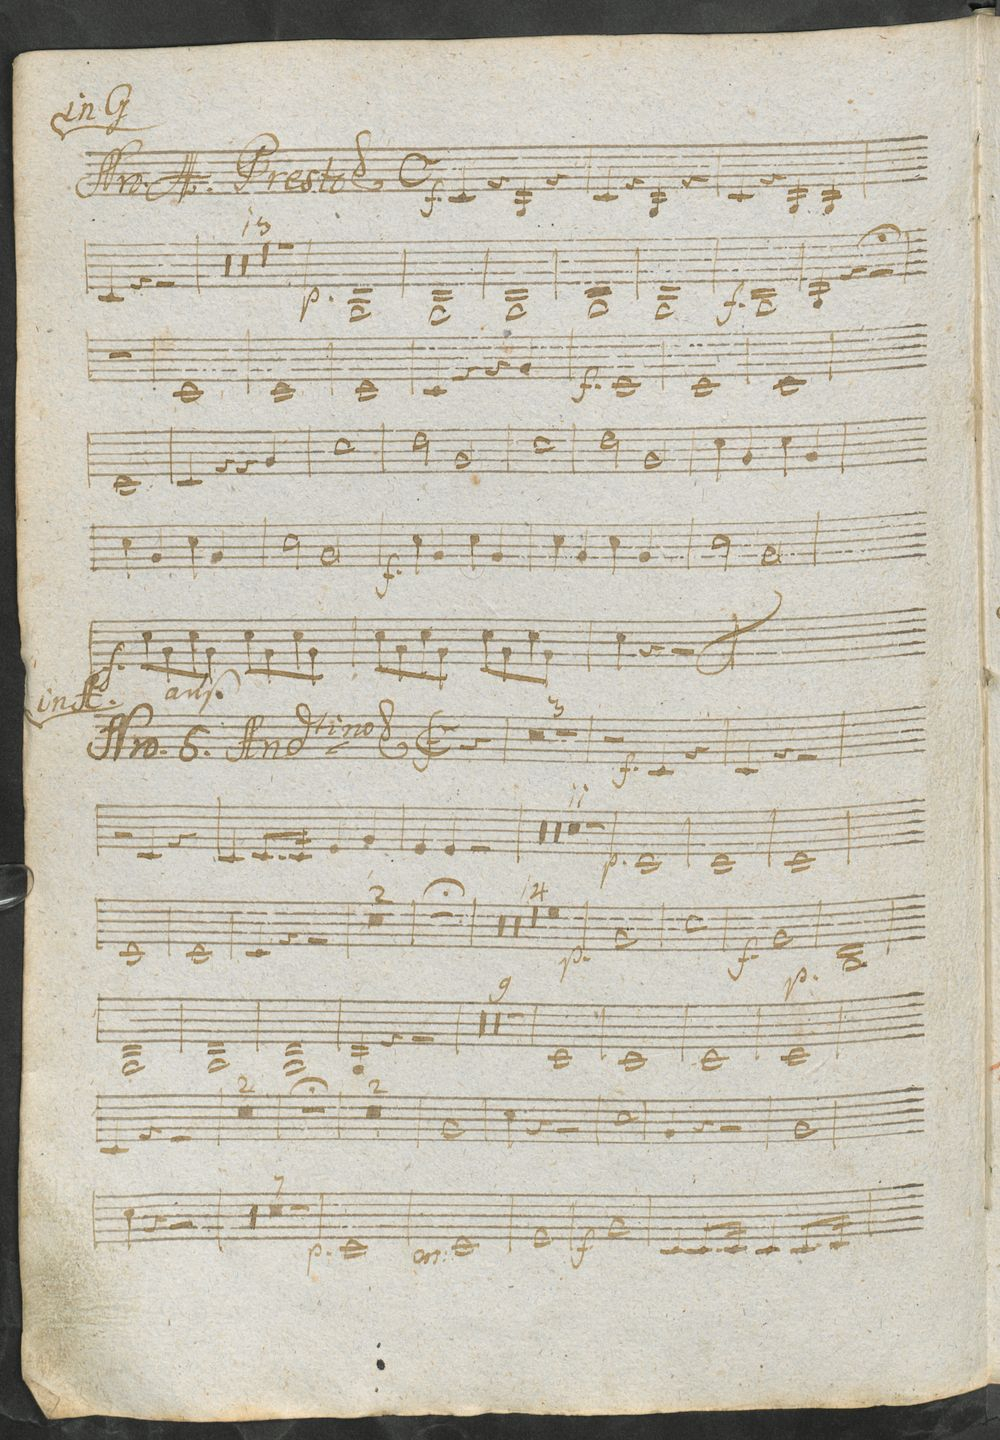 in G
Nro. 4. Presto C f.
13
p. f.
f.
f.
f.
aus.
in A.
Nro. 5. Andtino 3
f.
11
p.
2 14
p. f. p.
9
2 2
7
p. cres: f